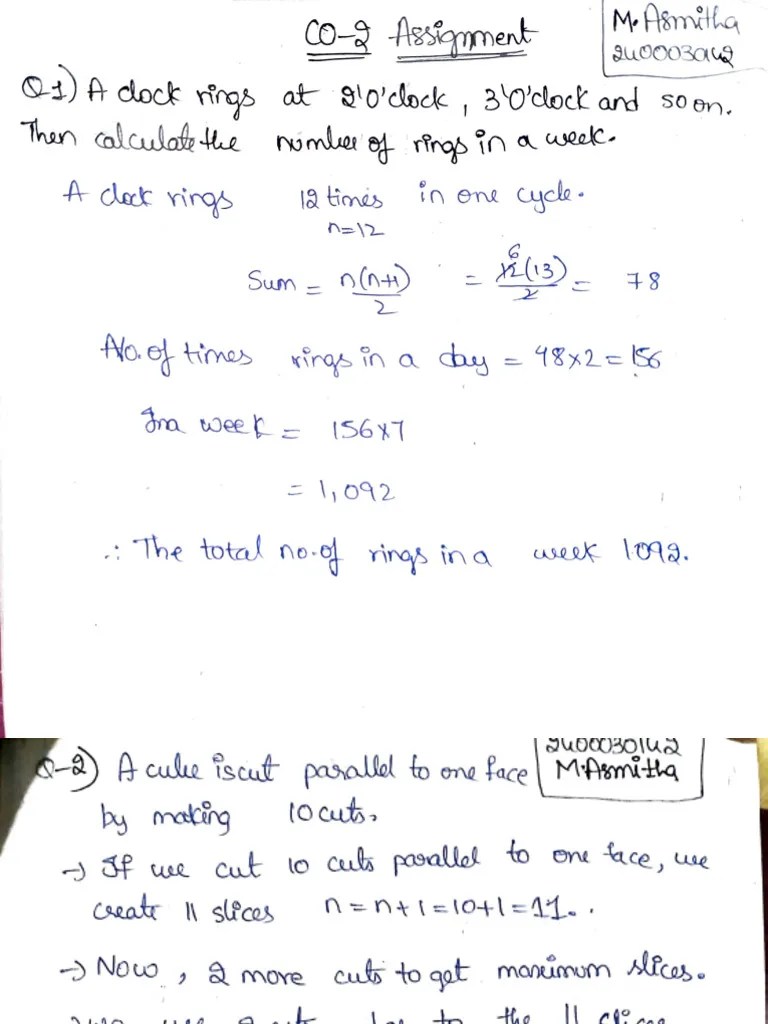 CO-2 Assignment
M. Asmitha
2400030142
Q-1) A clock rings at 2'O'clock, 3'O'clock and so on.
Then calculate the number of rings in a week.
A clock rings 12 times in one cycle.
n=12
Sum = n(n+1)/2 = 6 12(13)/2 = 78
No. of times rings in a day = 48×2 = 156
In a week = 156×7
= 1,092
∴ The total no. of rings in a week 1092.
2400030142
M. Asmitha
Q-2) A cube is cut parallel to one face
by making 10 cuts.
→ If we cut 10 cuts parallel to one face, we
create 11 slices n = n+1 = 10+1 = 11.
→ Now, 2 more cuts to get maximum slices.
to the 11 slices